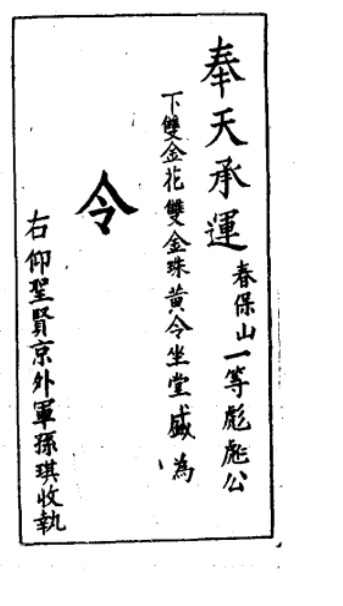 奉天承運春保山一等彪彪公
下雙金花雙金珠黃令坐堂盛為
令
右仰聖賢京外軍孫琪收執